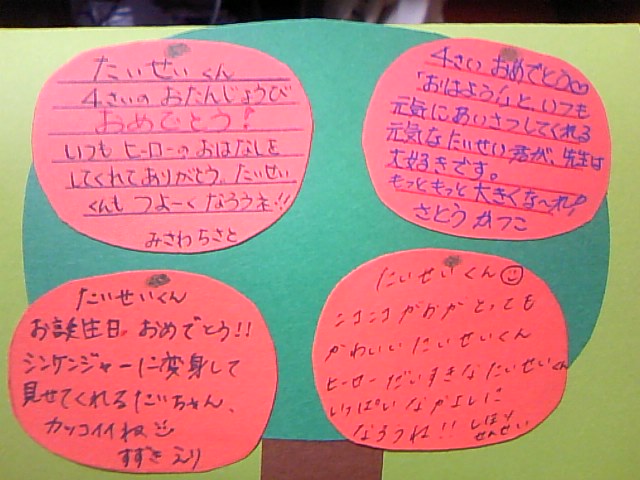 たいせいくん
4さいの おたんじょうび
おめでとう!
いつも ヒーローの おはなしを
してくれてありがとう。たいせい
くんも つよーく なろうネ!!
みさわ ちさと
4さい おめでとう♡
「おはよう」と いつも
元気に あいさつしてくれる
元気な たいせい君が、先生は
大好きです。
もっともっと 大きくな〜れ!
さとう かつこ
たいせいくん
お誕生日 おめでとう!!
シンケンジャーに変身して
見せてくれる たいちゃん、
カッコイイね
すずき えり
たいせいくん
ニコニコ がおが とっても
かわいい たいせいくん
ヒーローだいすきな たいせいくん
いっぱい なかよしに
なろうね!!
せんせい